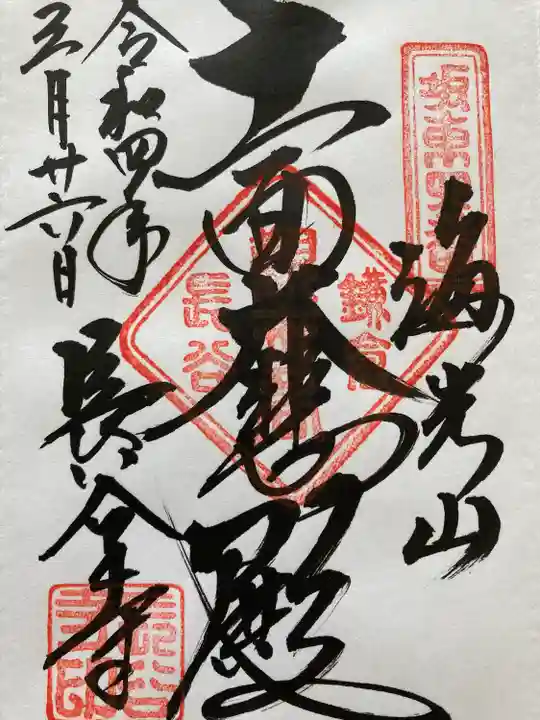 坂東四番
海光山
十一面大悲殿
鎌倉
長谷
令和四年
三月廿六日
長谷寺
長谷寺印